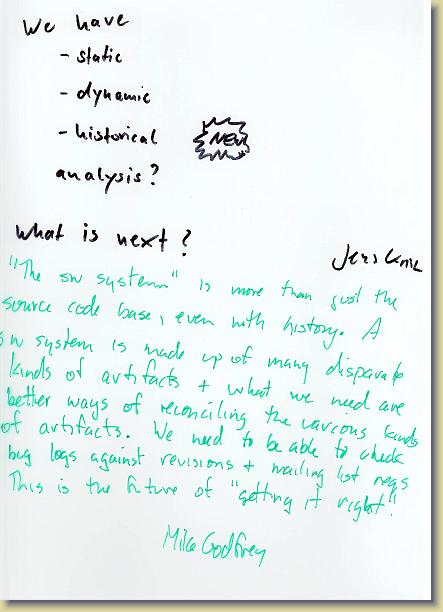 We have
- static
- dynamic
- historical
NEW
analysis?
What is next?
Jens
"The sw system" is more than just the
source code base, even with history. A
sw system is made up of many disparate
kinds of artifacts + what we need are
better ways of reconciling the various kinds
of artifacts. We need to be able to check
bug logs against revisions + mailing list
This is the future of "getting it right"!
Mike Godfrey